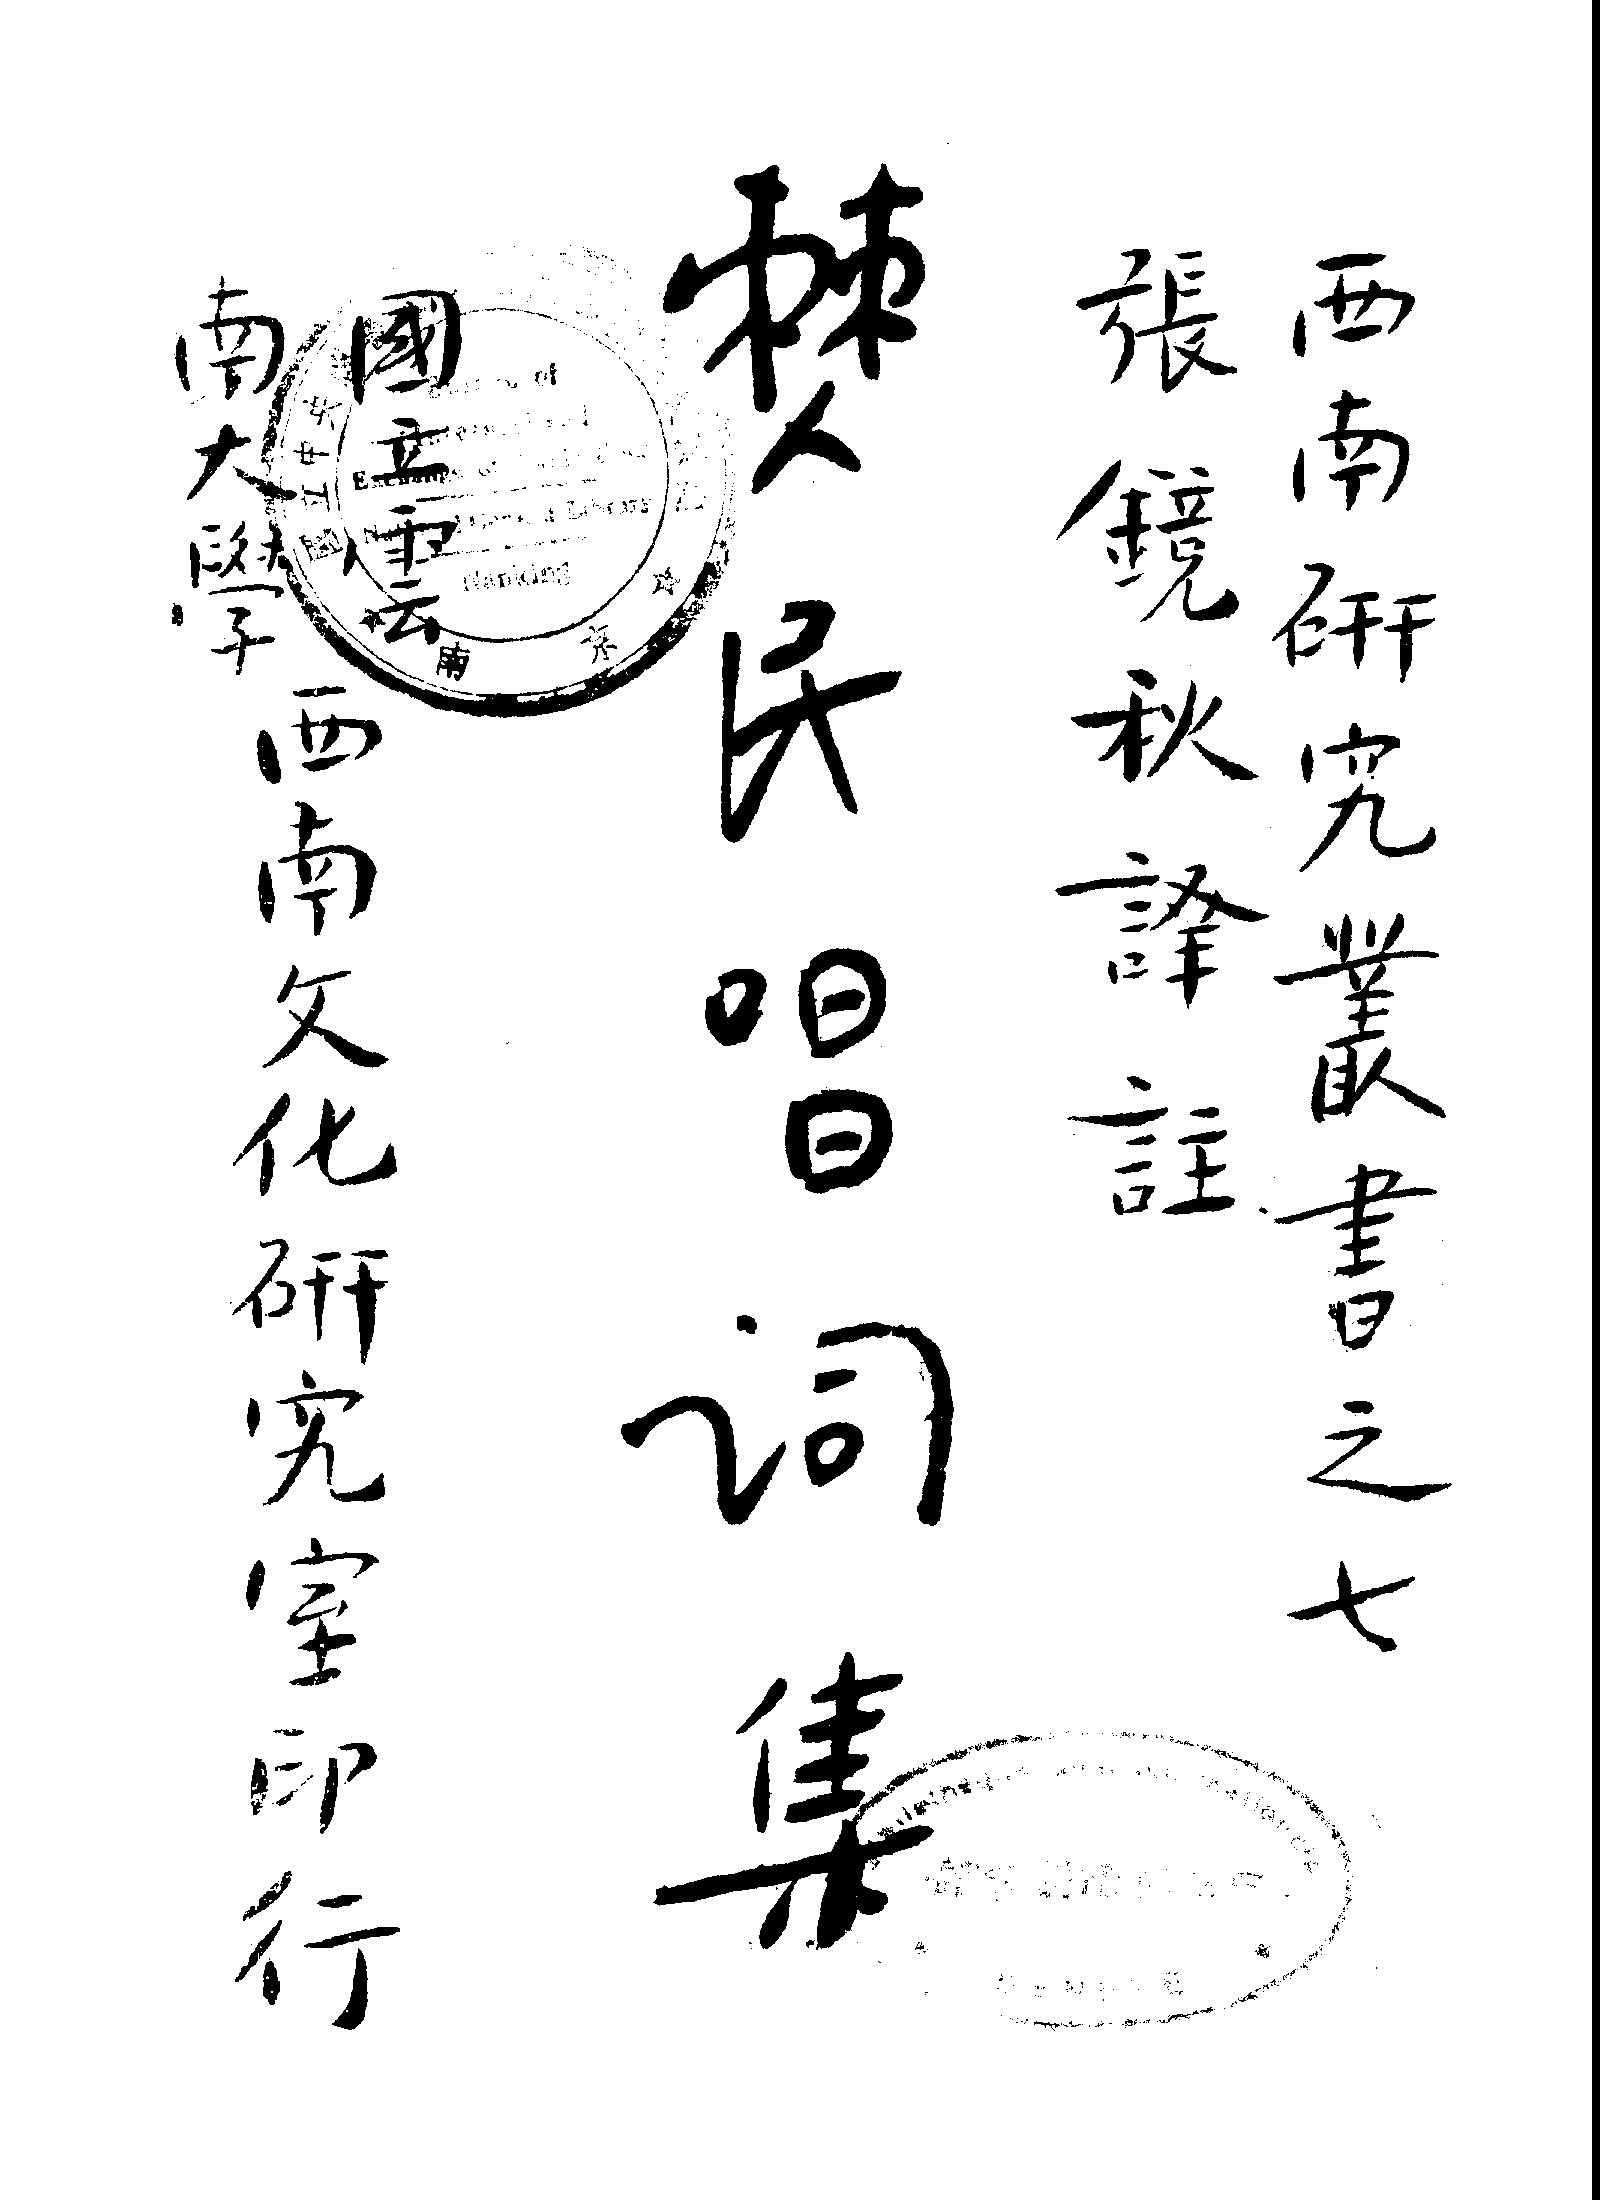 西南研究叢書之七
張鏡秋譯註
僰民唱词集
國立雲
南大學
西南文化研究室印行
of
Exchange of
Library
Nanking
中央
南京